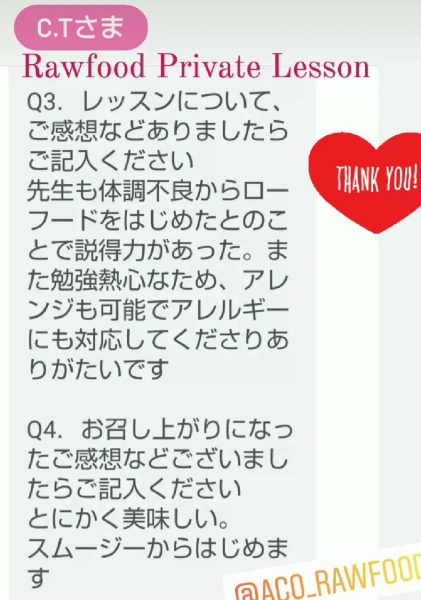 C.Tさま
Rawfood Private Lesson
Q3. レッスンについて、
ご感想などありましたら
ご記入ください
先生も体調不良からロー
フードをはじめたとのこ
とで説得力があった。ま
た勉強熱心なため、アレ
ンジも可能でアレルギー
にも対応してくださりあ
りがたいです
THANK YOU!
Q4. お召し上がりになっ
たご感想などございまし
たらご記入ください
とにかく美味しい。
スムージーからはじめま
す
@ACO_RAWFOOD